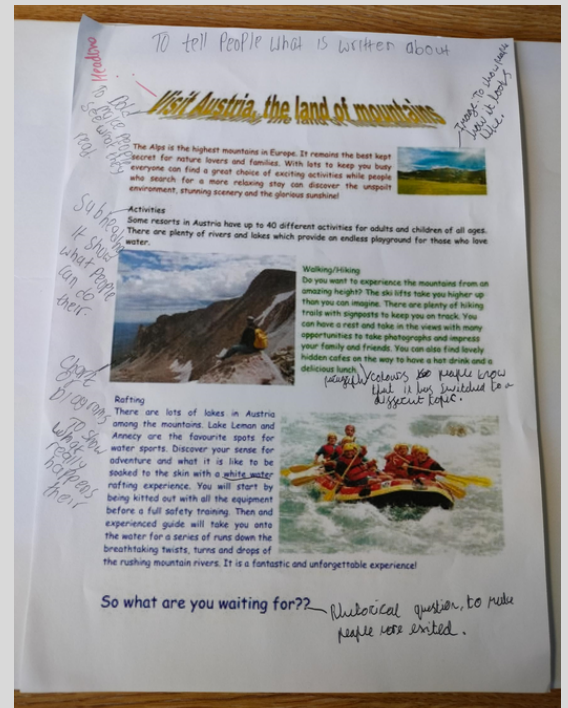 TO tell People what is written about
Headline
Visit Austria, the land of mountains
Image-To show people
how it looks
like.
Bold
To make people
see what they
read
The Alps is the highest mountains in Europe. It remains the best kept
secret for nature lovers and families. With lots to keep you busy
everyone can find a great choice of exciting activities while people
who search for a more relaxing stay can discover the unspoilt
environment, stunning scenery and the glorious sunshine!
Subheading
It Show
what People
can do
their.
Activities
Some resorts in Austria have up to 40 different activities for adults and children of all ages.
There are plenty of rivers and lakes which provide an endless playground for those who love
water.
Walking/Hiking
Do you want to experience the mountains from an
amazing height? The ski lifts take you higher up
than you can imagine. There are plenty of hiking
trails with signposts to keep you on track. You
can have a rest and take in the views with many
opportunities to take photographs and impress
your family and friends. You can also find lovely
hidden cafes on the way to have a hot drink and a
delicious lunch.
paragraph/colours so people know
that it has switched to a
different topic.
Diagrams
To show
what
really
happens
their
Rafting
There are lots of lakes in Austria
among the mountains. Lake Leman and
Annecy are the favourite spots for
water sports. Discover your sense for
adventure and what it is like to be
soaked to the skin with a white water
rafting experience. You will start by
being kitted out with all the equipment
before a full safety training. Then and
experienced guide will take you onto
the water for a series of runs down the
breathtaking twists, turns and drops of
the rushing mountain rivers. It is a fantastic and unforgettable experience!
So what are you waiting for??
Rhetorical question, to make
people more exited.